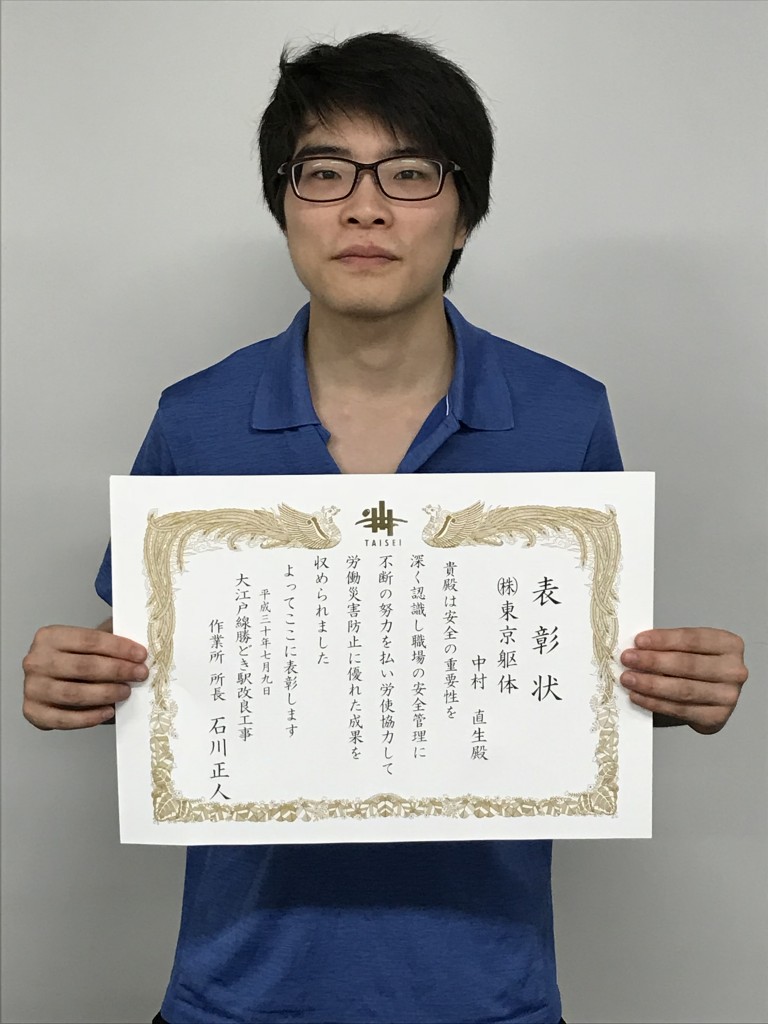 TAISEI
表彰状
㈱東京躯体
中村 直生殿
貴殿は安全の重要性を
深く認識し職場の安全管理に
不断の努力を払い労使協力して
労働災害防止に優れた成果を
収められました
よってここに表彰します
平成三十年七月九日
大江戸線勝どき駅改良工事
作業所 所長 石川正人